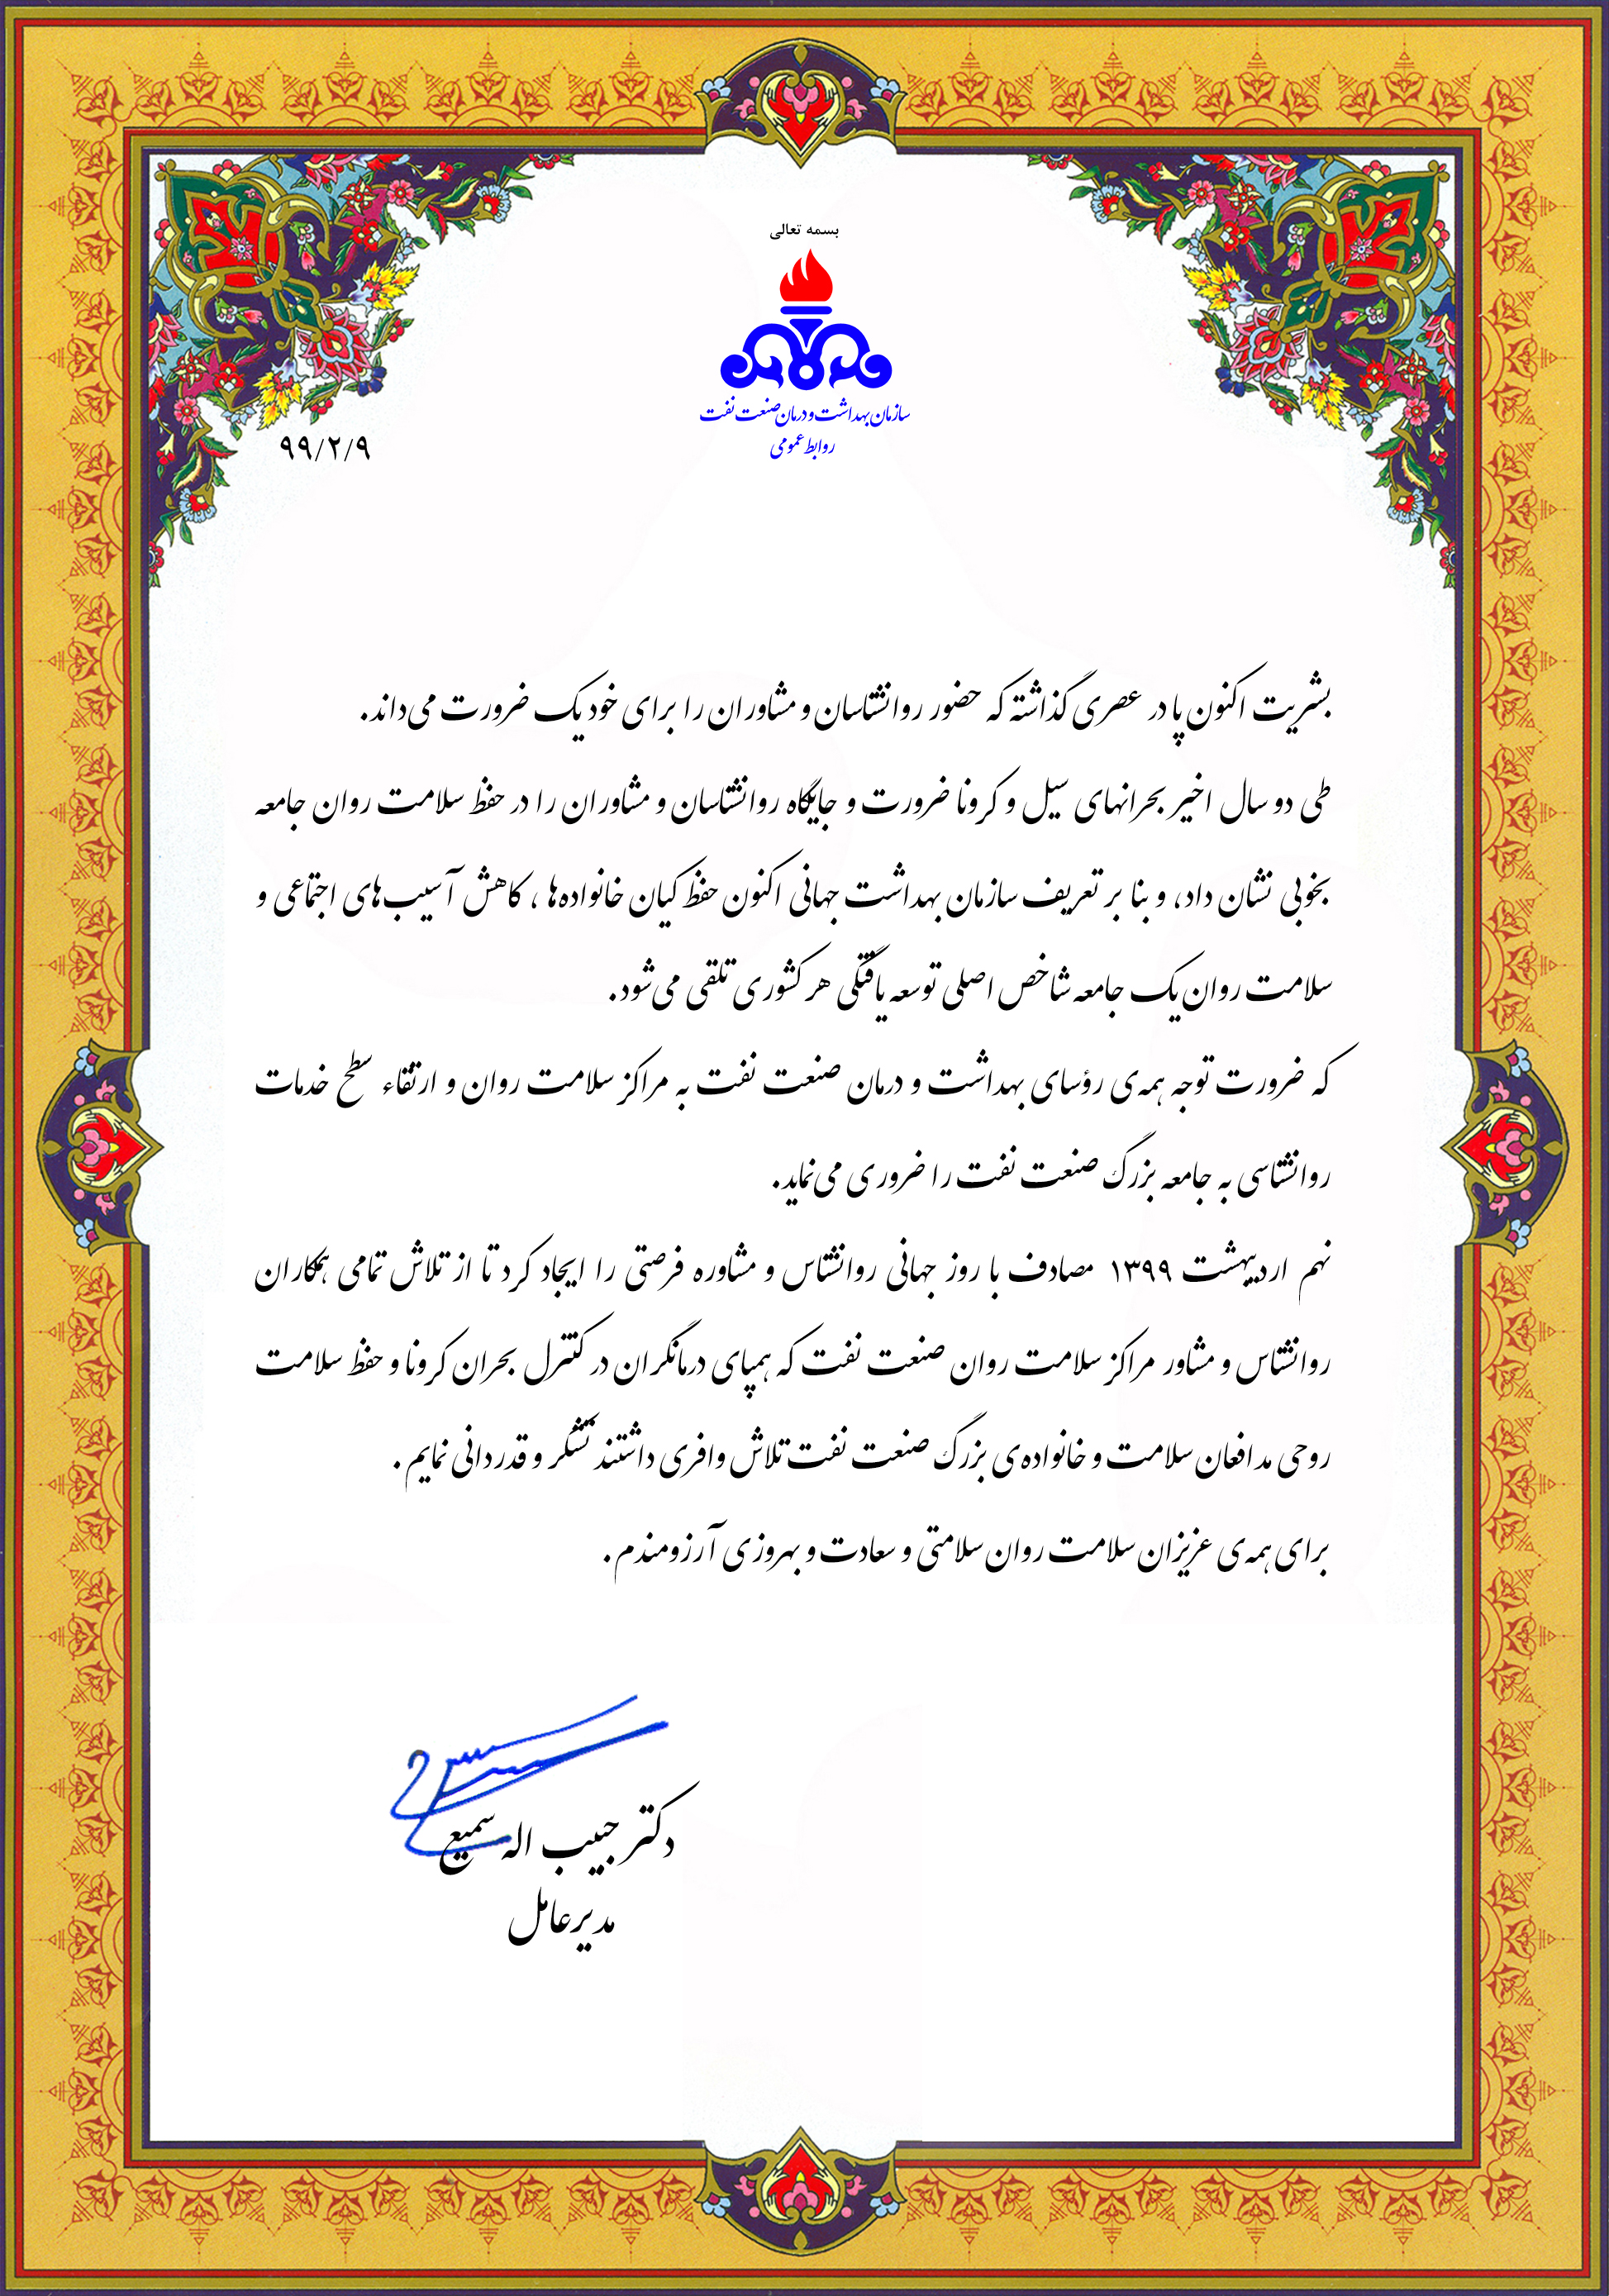 بسمه تعالی
سازمان بهداشت و درمان صنعت نفت
روابط عمومی
۹۹/۲/۹
بشریت اکنون پا در عصری گذاشته که حضور روانشناسان و مشاوران را برای خود یک ضرورت می‌داند.
طی دو سال اخیر بحرانهای سیل و کرونا ضرورت و جایگاه روانشناسان و مشاوران را در حفظ سلامت روان جامعه
بخوبی نشان داد، و بنا بر تعریف سازمان بهداشت جهانی اکنون حفظ کیان خانواده‌ها ، کاهش آسیب‌های اجتماعی و
سلامت روان یک جامعه شاخص اصلی توسعه یافتگی هر کشوری تلقی می‌شود.
که ضرورت توجه همه‌ی رؤسای بهداشت و درمان صنعت نفت به مراکز سلامت روان و ارتقاء سطح خدمات
روانشناسی به جامعه بزرگ صنعت نفت را ضروری می‌نماید.
نهم اردیبهشت ۱۳۹۹ مصادف با روز جهانی روانشناس و مشاوره فرصتی را ایجاد کرد تا از تلاش تمامی همکاران
روانشناس و مشاور مراکز سلامت روان صنعت نفت که همپای درمانگران در کنترل بحران کرونا و حفظ سلامت
روحی مدافعان سلامت و خانواده‌ی بزرگ صنعت نفت تلاش وافری داشتند تشکر و قدردانی نمایم .
برای همه‌ی عزیزان سلامت روان سلامتی و سعادت و بهروزی آرزومندم .
دکتر حبیب اله سمیع
مدیرعامل